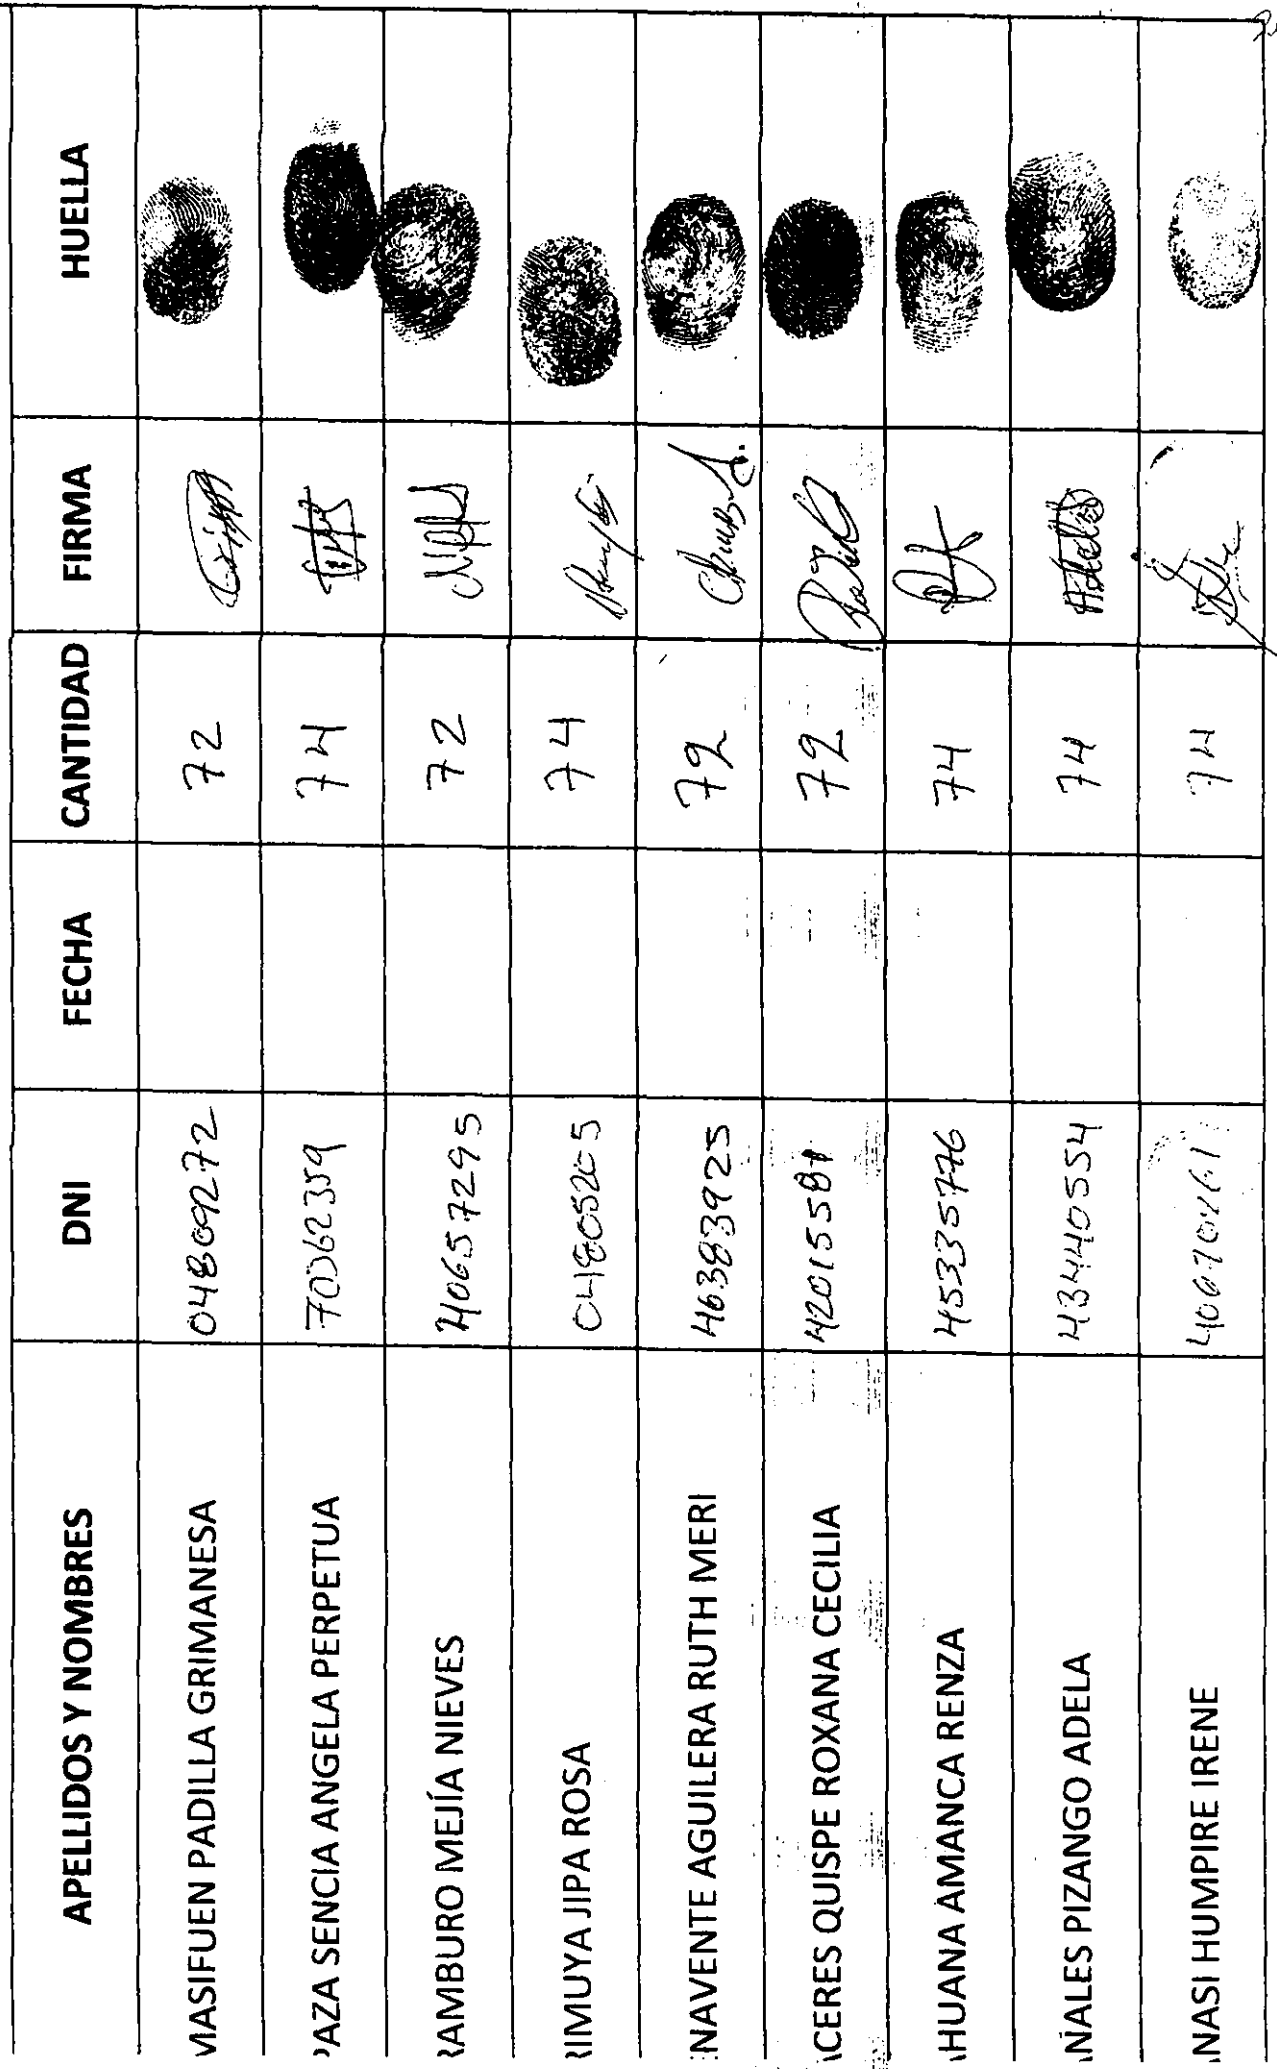 APELLIDOS Y NOMBRES DNI FECHA CANTIDAD FIRMA HUELLA
MASIFUEN PADILLA GRIMANESA 04809272 72
PAZA SENCIA ANGELA PERPETUA 70362359 74
RAMBURO MEJÍA NIEVES 40657295 72
RIMUYA JIPA ROSA 04805205 74
ENAVENTE AGUILERA RUTH MERI 46383925 72
ACERES QUISPE ROXANA CECILIA 72
AHUANA AMANCA RENZA 45335776 74
ANALES PIZANGO ADELA 43440554 74
NASI HUMPIRE IRENE 74